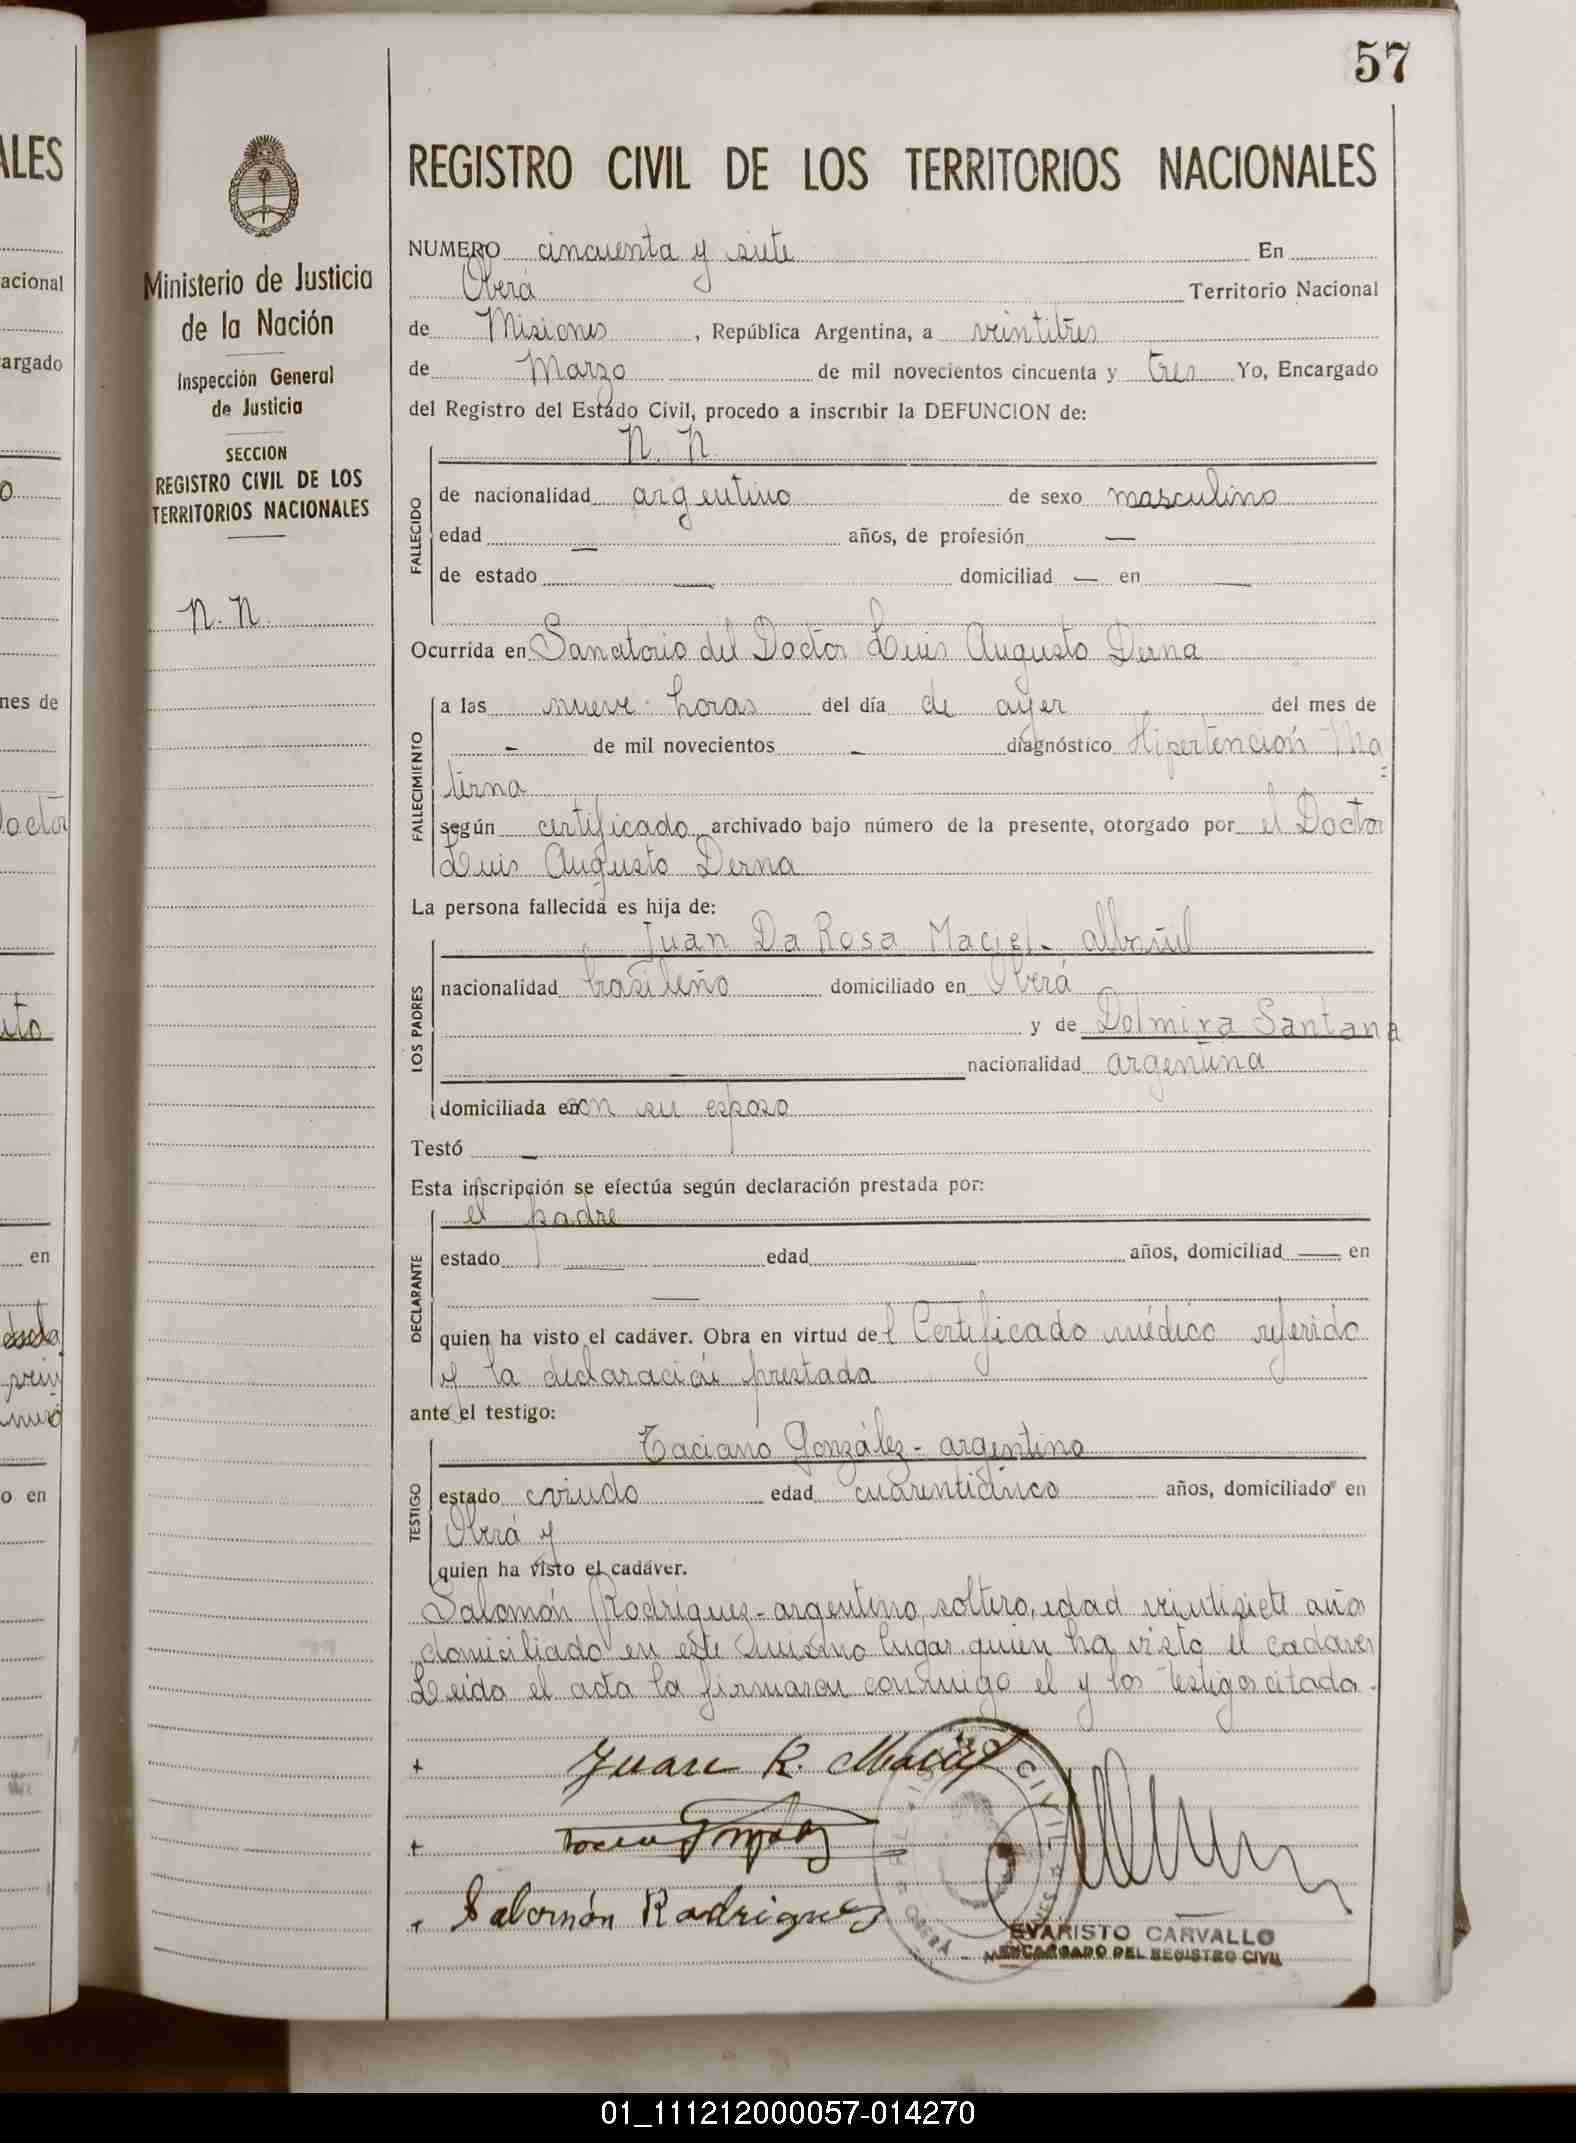 57
REGISTRO CIVIL DE LOS TERRITORIOS NACIONALES
Ministerio de Justicia
de la Nación
Inspección General
de Justicia
SECCION
REGISTRO CIVIL DE LOS
TERRITORIOS NACIONALES
N. N.
NUMERO cincuenta y siete En
Oberá Territorio Nacional
de Misiones, República Argentina, a veintitres
de Marzo de mil novecientos cincuenta y tres Yo, Encargado
del Registro del Estado Civil, procedo a inscribir la DEFUNCION de:
N. N.
FALLECIDO
de nacionalidad argentino de sexo masculino
edad — años, de profesión —
de estado — domiciliad — en —
Ocurrida en Sanatorio del Doctor Luis Augusto Derna
FALLECIMIENTO
a las nueve horas del día de ayer del mes de
- de mil novecientos - diagnóstico Hipertención Ma=
terna
según certificado archivado bajo número de la presente, otorgado por el Doctor
Luis Augusto Derna
La persona fallecida es hija de:
LOS PADRES
Juan Da Rosa Maciel - albañil
nacionalidad brasileño domiciliado en Oberá
y de Dolmira Santana
— nacionalidad argentina
domiciliada en con su esposo
Testó —
Esta inscripción se efectúa según declaración prestada por:
DECLARANTE
el padre
estado — edad — años, domiciliad — en
—
quien ha visto el cadáver. Obra en virtud del Certificado médico referido
y la declaración prestada
ante el testigo:
TESTIGO
Taciano González - argentino
estado viudo edad cuarenticinco años, domiciliado en
Oberá y
quien ha visto el cadáver.
Salomón Rodríguez - argentino, soltero, edad veintisiete años
domiciliado en este mismo lugar quien ha visto el cadaver
Leida el acta la firmaron conmigo el y los testigos citados.
+ Juan R. Maciel
+
+ Salomón Rodriguez
CIVIL
OBERÁ
EVARISTO CARVALLO
ENCARGADO DEL REGISTRO CIVIL
ALES
acional
argado
o
nes de
Doctor
en
o en
01_111212000057-014270